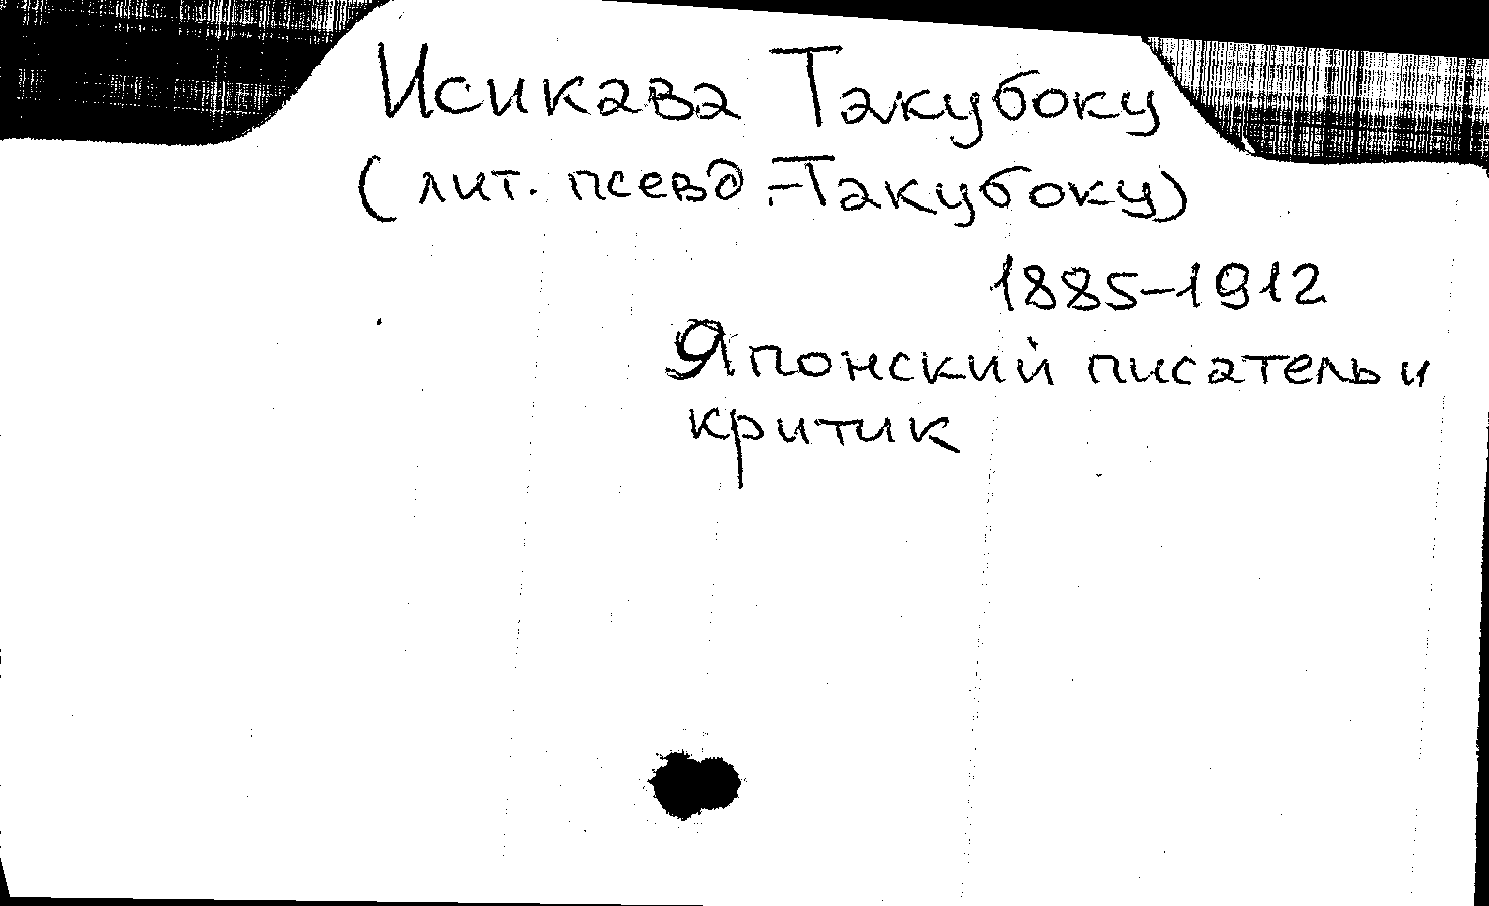 Исикава Такубоку
(лит. псевд.-Такубоку)
1885-1912
Японский писатель и
критик